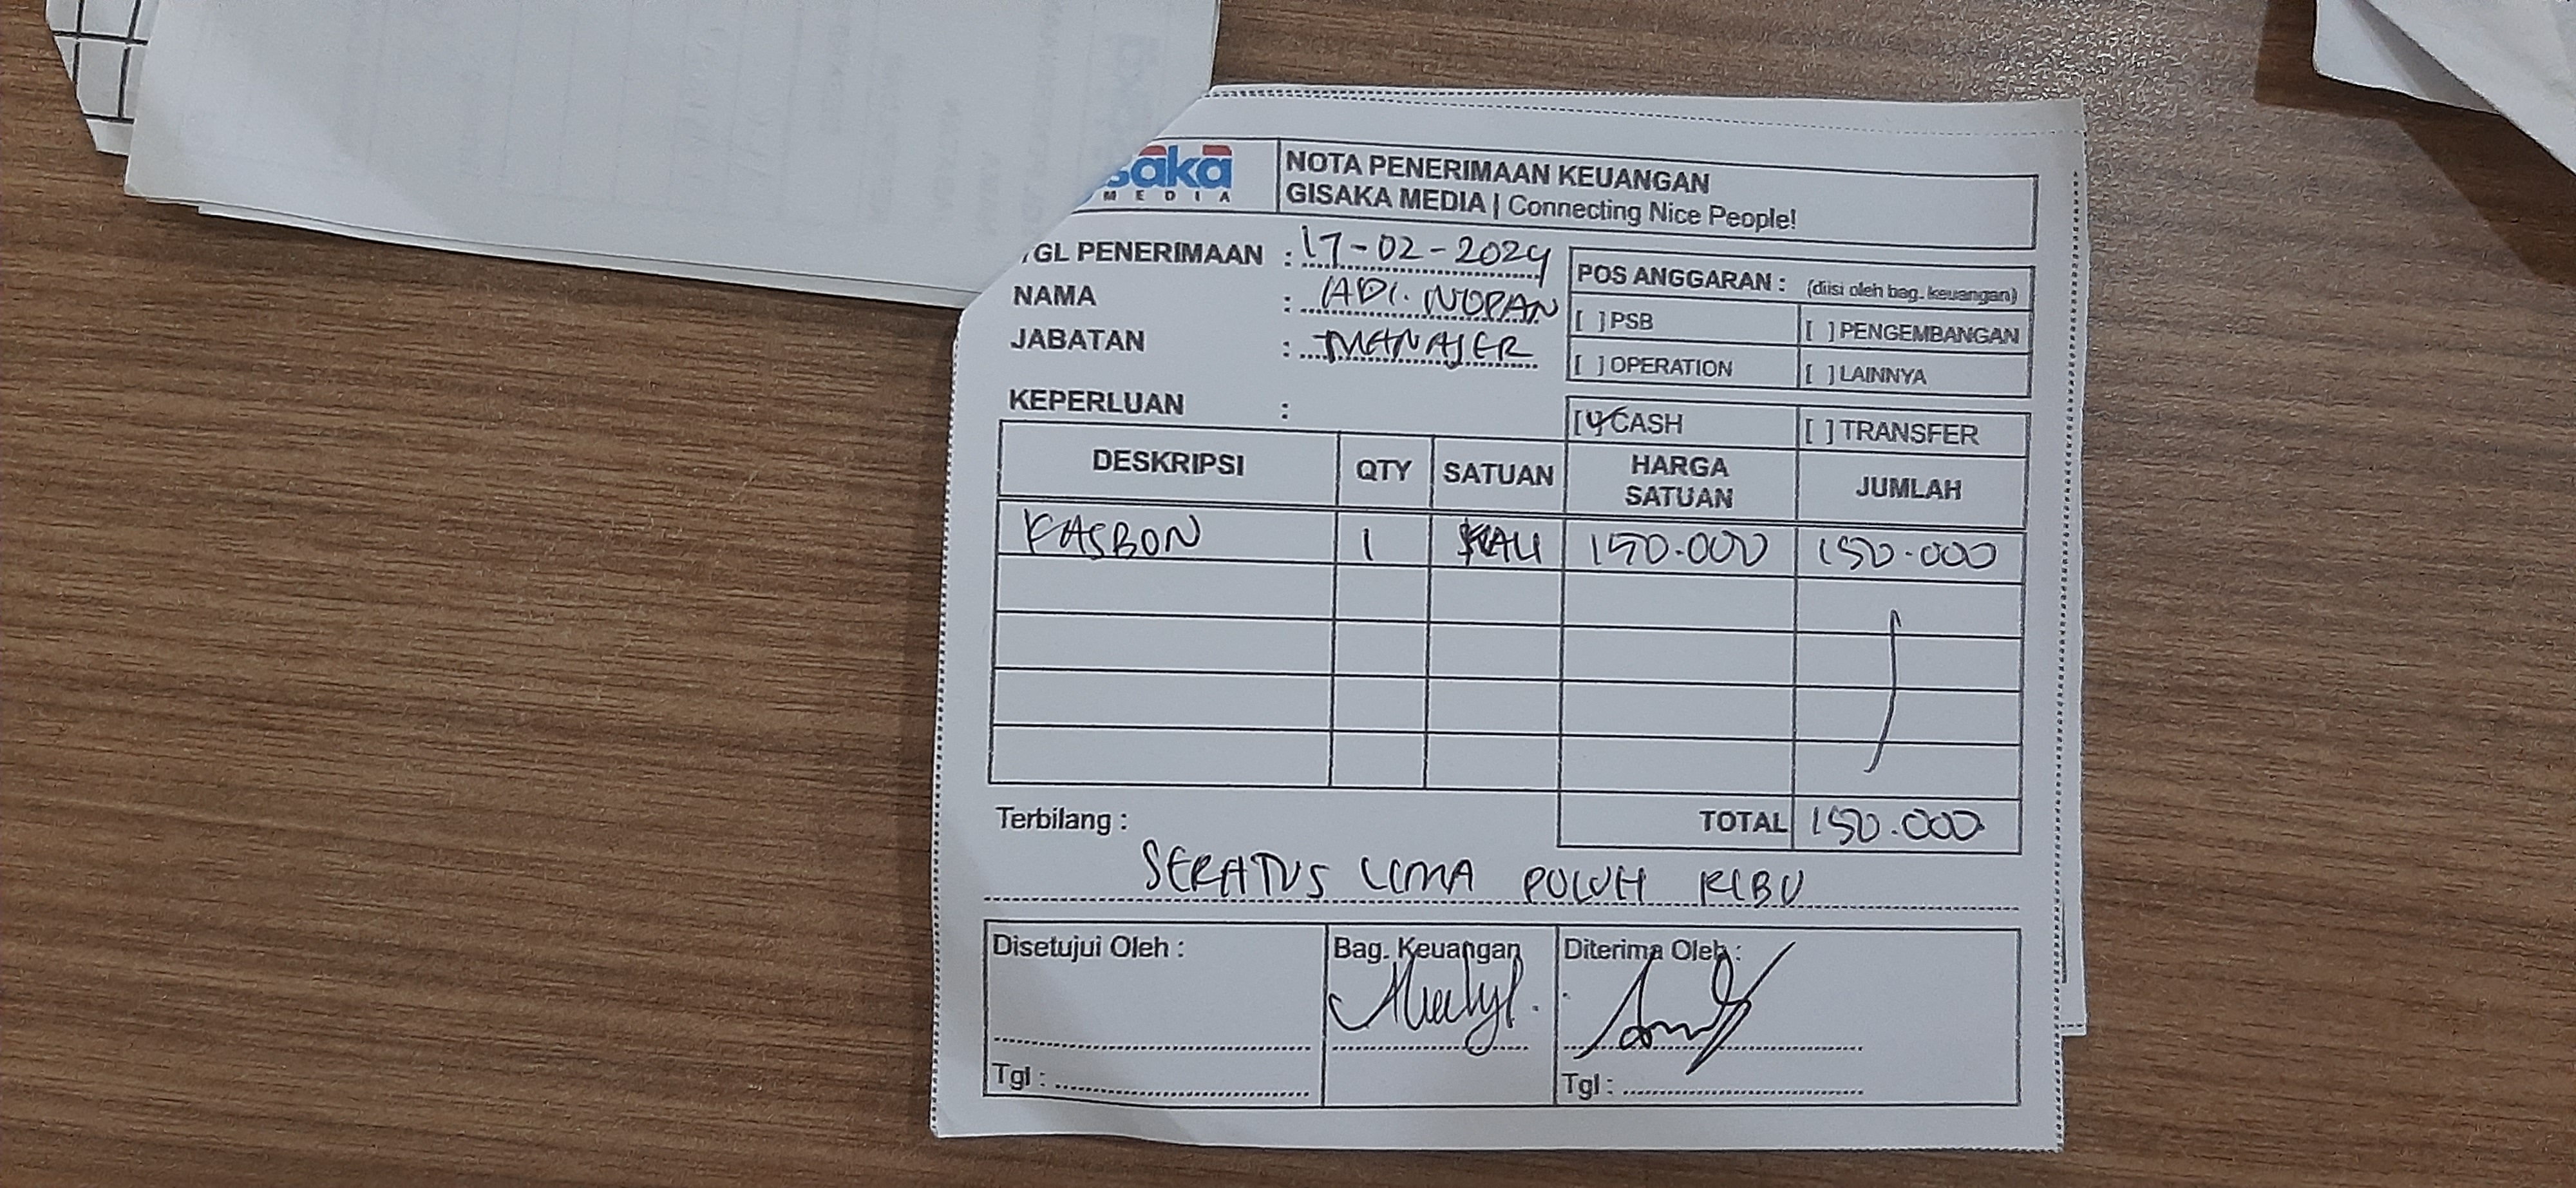 saka
MEDIA
NOTA PENERIMAAN KEUANGAN
GISAKA MEDIA | Connecting Nice People!
GL PENERIMAAN : 17-02-2024
NAMA : ADI NOPAN
JABATAN : MANAJER
KEPERLUAN :
POS ANGGARAN : (diisi oleh bag. keuangan)
[ ] PSB [ ] PENGEMBANGAN
[ ] OPERATION [ ] LAINNYA
[ ] CASH [ ] TRANSFER
DESKRIPSI QTY SATUAN HARGA SATUAN JUMLAH
KASBON 1 KALI 150.000 150.000
TOTAL 150.000
Terbilang :
SERATUS LIMA PULUH RIBU
Disetujui Oleh : Bag. Keuangan Diterima Oleh :
Tgl : Tgl :